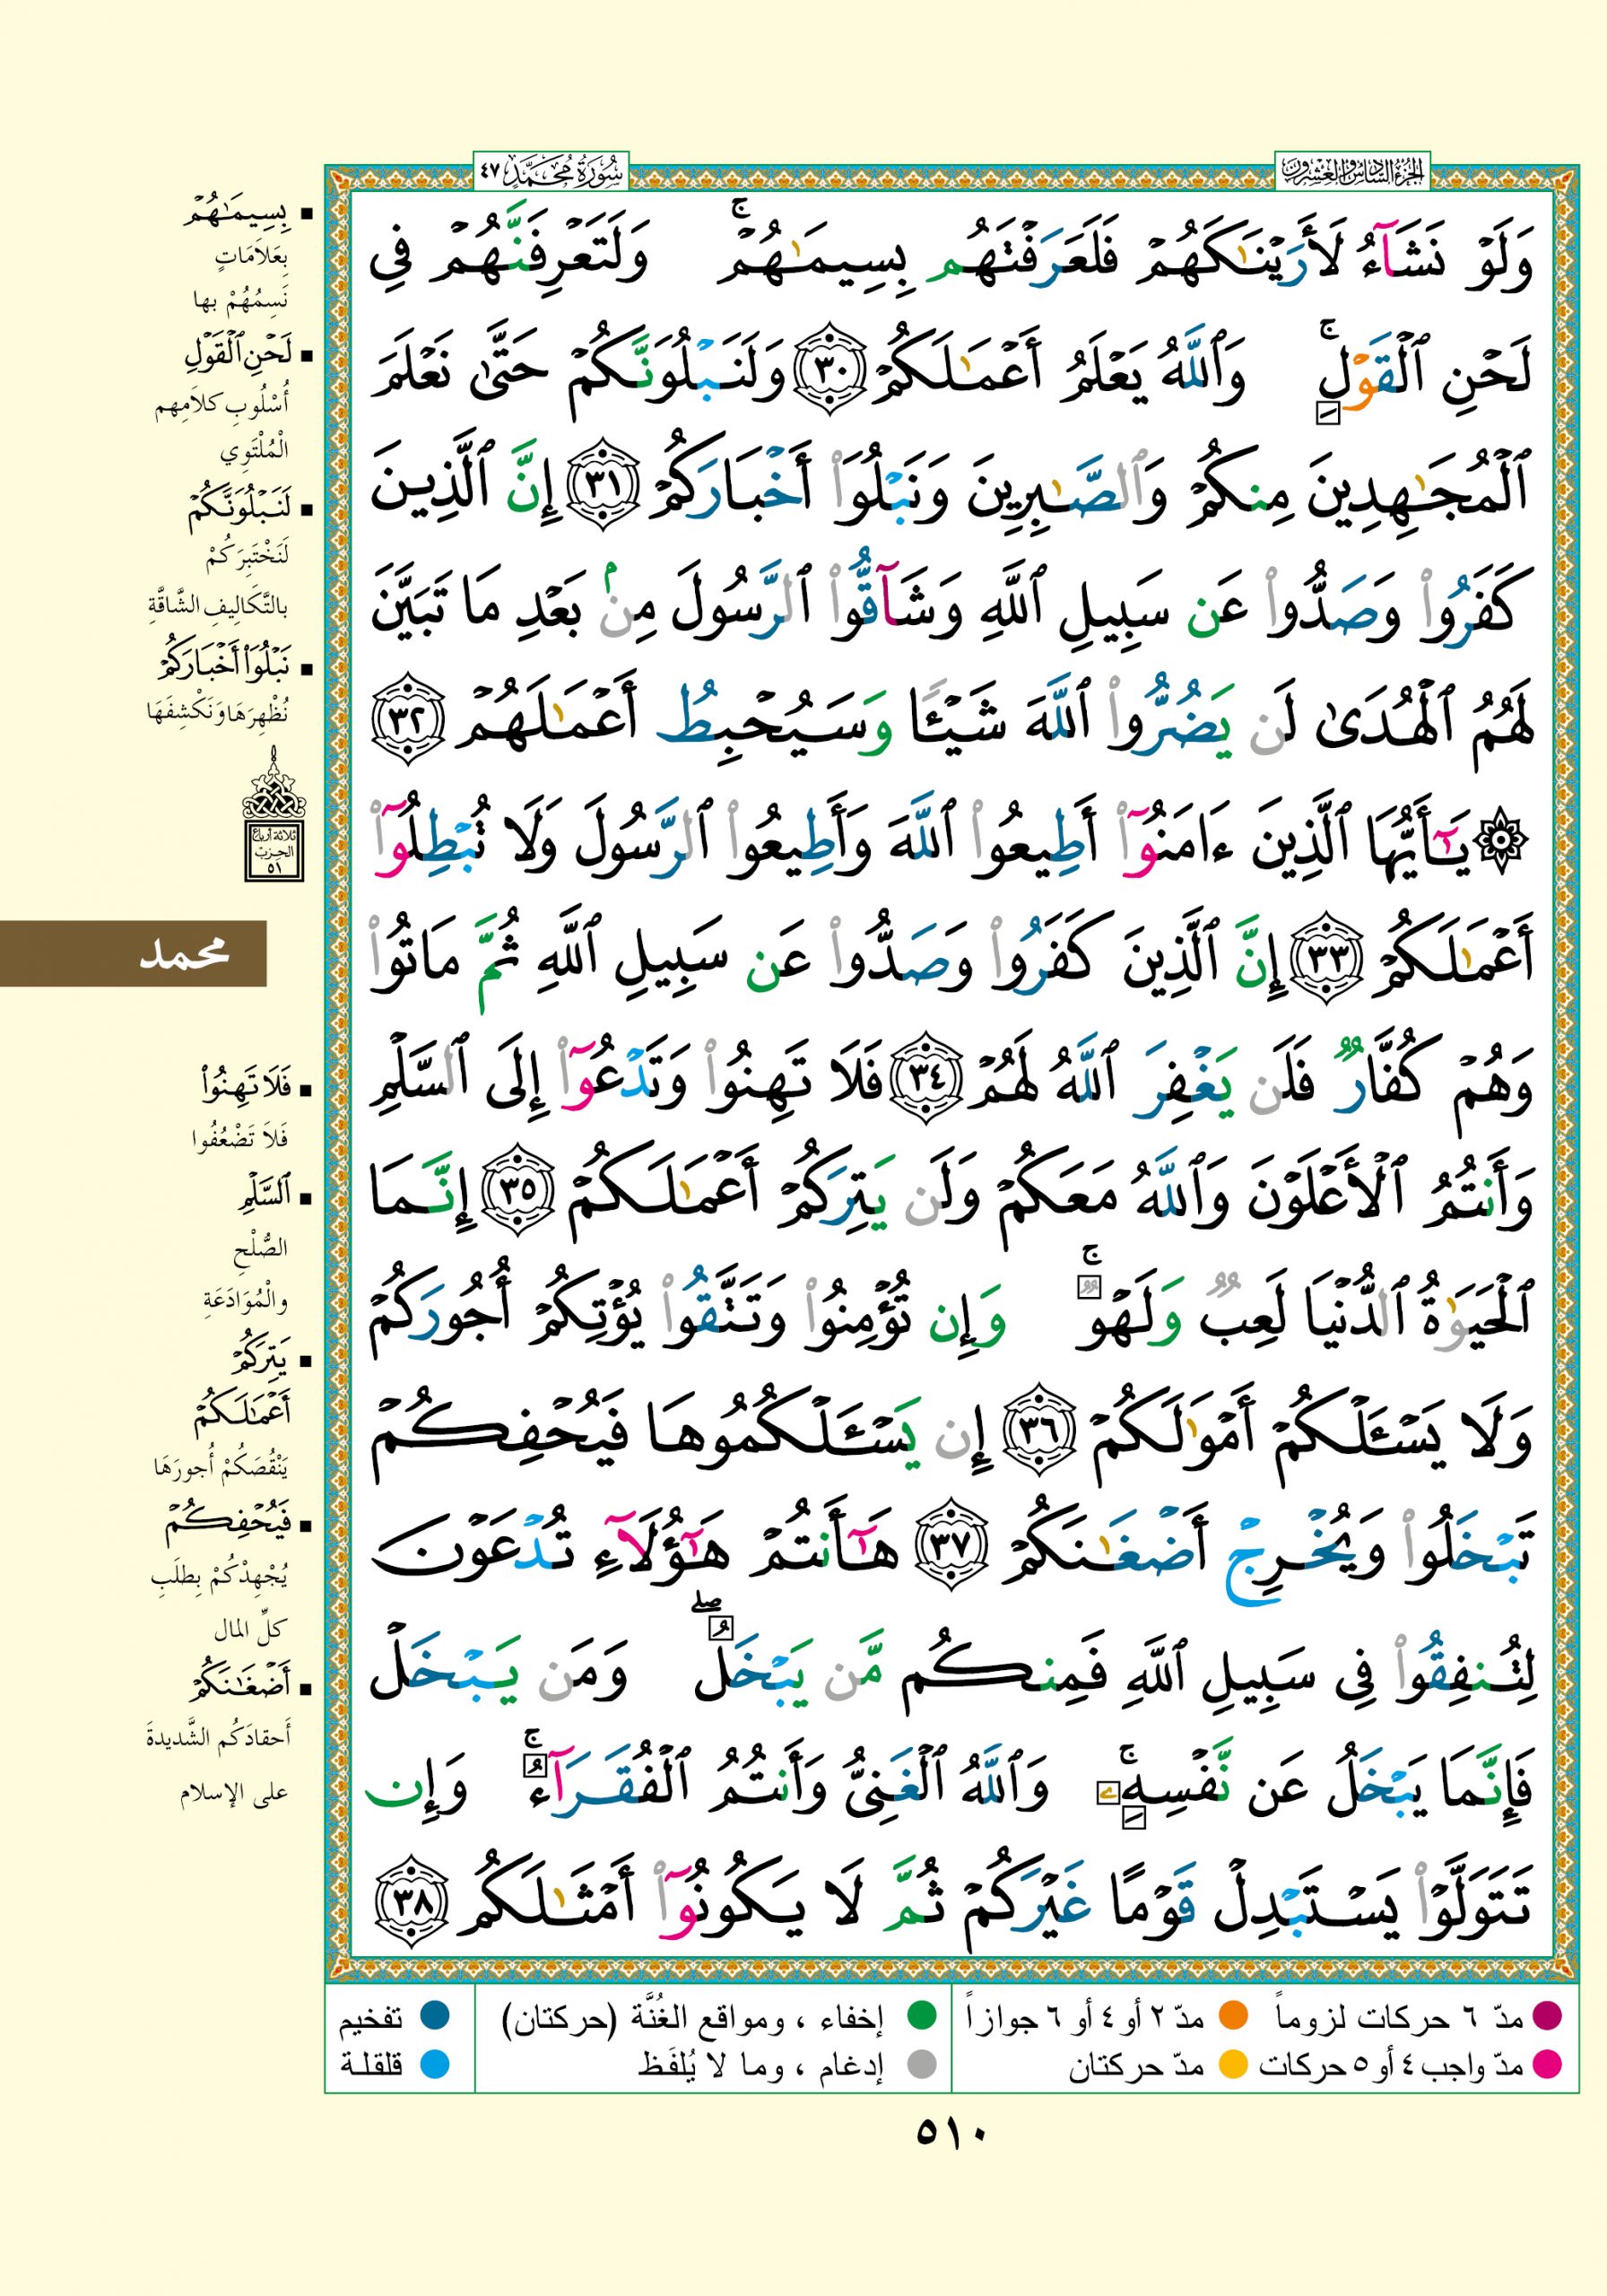 الجزء السادس والعشرون
سُورَةُ مُحَمَّدٍ ٤٧
وَلَوْ نَشَآءُ لَأَرَيْنَـٰكَهُمْ فَلَعَرَفْتَهُم بِسِيمَـٰهُمْ ۚ وَلَتَعْرِفَنَّهُمْ فِى
لَحْنِ ٱلْقَوْلِ ۚ وَٱللَّهُ يَعْلَمُ أَعْمَـٰلَكُمْ ٣٠ وَلَنَبْلُوَنَّكُمْ حَتَّىٰ نَعْلَمَ
ٱلْمُجَـٰهِدِينَ مِنكُمْ وَٱلصَّـٰبِرِينَ وَنَبْلُوَا۟ أَخْبَارَكُمْ ٣١ إِنَّ ٱلَّذِينَ
كَفَرُوا۟ وَصَدُّوا۟ عَن سَبِيلِ ٱللَّهِ وَشَآقُّوا۟ ٱلرَّسُولَ مِنۢ بَعْدِ مَا تَبَيَّنَ
لَهُمُ ٱلْهُدَىٰ لَن يَضُرُّوا۟ ٱللَّهَ شَيْـًٔا وَسَيُحْبِطُ أَعْمَـٰلَهُمْ ٣٢
۞ يَـٰٓأَيُّهَا ٱلَّذِينَ ءَامَنُوٓا۟ أَطِيعُوا۟ ٱللَّهَ وَأَطِيعُوا۟ ٱلرَّسُولَ وَلَا تُبْطِلُوٓا۟
أَعْمَـٰلَكُمْ ٣٣ إِنَّ ٱلَّذِينَ كَفَرُوا۟ وَصَدُّوا۟ عَن سَبِيلِ ٱللَّهِ ثُمَّ مَاتُوا۟
وَهُمْ كُفَّارٌ فَلَن يَغْفِرَ ٱللَّهُ لَهُمْ ٣٤ فَلَا تَهِنُوا۟ وَتَدْعُوٓا۟ إِلَى ٱلسَّلْمِ
وَأَنتُمُ ٱلْأَعْلَوْنَ وَٱللَّهُ مَعَكُمْ وَلَن يَتِرَكُمْ أَعْمَـٰلَكُمْ ٣٥ إِنَّمَا
ٱلْحَيَوٰةُ ٱلدُّنْيَا لَعِبٌ وَلَهْوٌ ۚ وَإِن تُؤْمِنُوا۟ وَتَتَّقُوا۟ يُؤْتِكُمْ أُجُورَكُمْ
وَلَا يَسْـَٔلْكُمْ أَمْوَٰلَكُمْ ٣٦ إِن يَسْـَٔلْكُمُوهَا فَيُحْفِكُمْ
تَبْخَلُوا۟ وَيُخْرِجْ أَضْغَـٰنَكُمْ ٣٧ هَـٰٓأَنتُمْ هَـٰٓؤُلَآءِ تُدْعَوْنَ
لِتُنفِقُوا۟ فِى سَبِيلِ ٱللَّهِ فَمِنكُم مَّن يَبْخَلُ ۖ وَمَن يَبْخَلْ
فَإِنَّمَا يَبْخَلُ عَن نَّفْسِهِۦ ۚ وَٱللَّهُ ٱلْغَنِىُّ وَأَنتُمُ ٱلْفُقَرَآءُ ۚ وَإِن
تَتَوَلَّوْا۟ يَسْتَبْدِلْ قَوْمًا غَيْرَكُمْ ثُمَّ لَا يَكُونُوٓا۟ أَمْثَـٰلَكُم ٣٨
▪ بِسِيمَـٰهُمْ
بِعَلاَمَاتٍ
نَسِمُهُمْ بها
▪ لَحْنِ ٱلْقَوْلِ
أُسْلُوبِ كلاَمِهِم
الْمُلْتَوِي
▪ لَنَبْلُوَنَّكُمْ
لَنَخْتَبِرَكُمْ
بالتَّكَالِيفِ الشَّاقَّةِ
▪ نَبْلُوَا۟ أَخْبَارَكُمْ
نُظْهِرَهَا وَنَكْشِفَهَا
ثلاثة أرباع
الحزب
٥١
محمد
▪ فَلَا تَهِنُوا۟
فَلاَ تَضْعُفُوا
▪ ٱلسَّلْمِ
الصُّلْحِ
والْمُوَادَعَةِ
▪ يَتِرَكُمْ
أَعْمَـٰلَكُمْ
يَنْقُصَكُمْ أُجورَهَا
▪ فَيُحْفِكُمْ
يُجْهِدْكُمْ بِطَلَبِ
كلِّ المال
▪ أَضْغَـٰنَكُمْ
أَحقادَكُم الشَّديدةَ
على الإسلام
مدّ ٦ حركات لزوماً
مدّ ٢ أو ٤ أو ٦ جوازاً
إخفاء ، ومواقع الغُنَّة (حركتان)
تفخيم
مدّ واجب ٤ أو ٥ حركات
مدّ حركتان
إدغام ، وما لا يُلفَظ
قلقلة
٥١٠